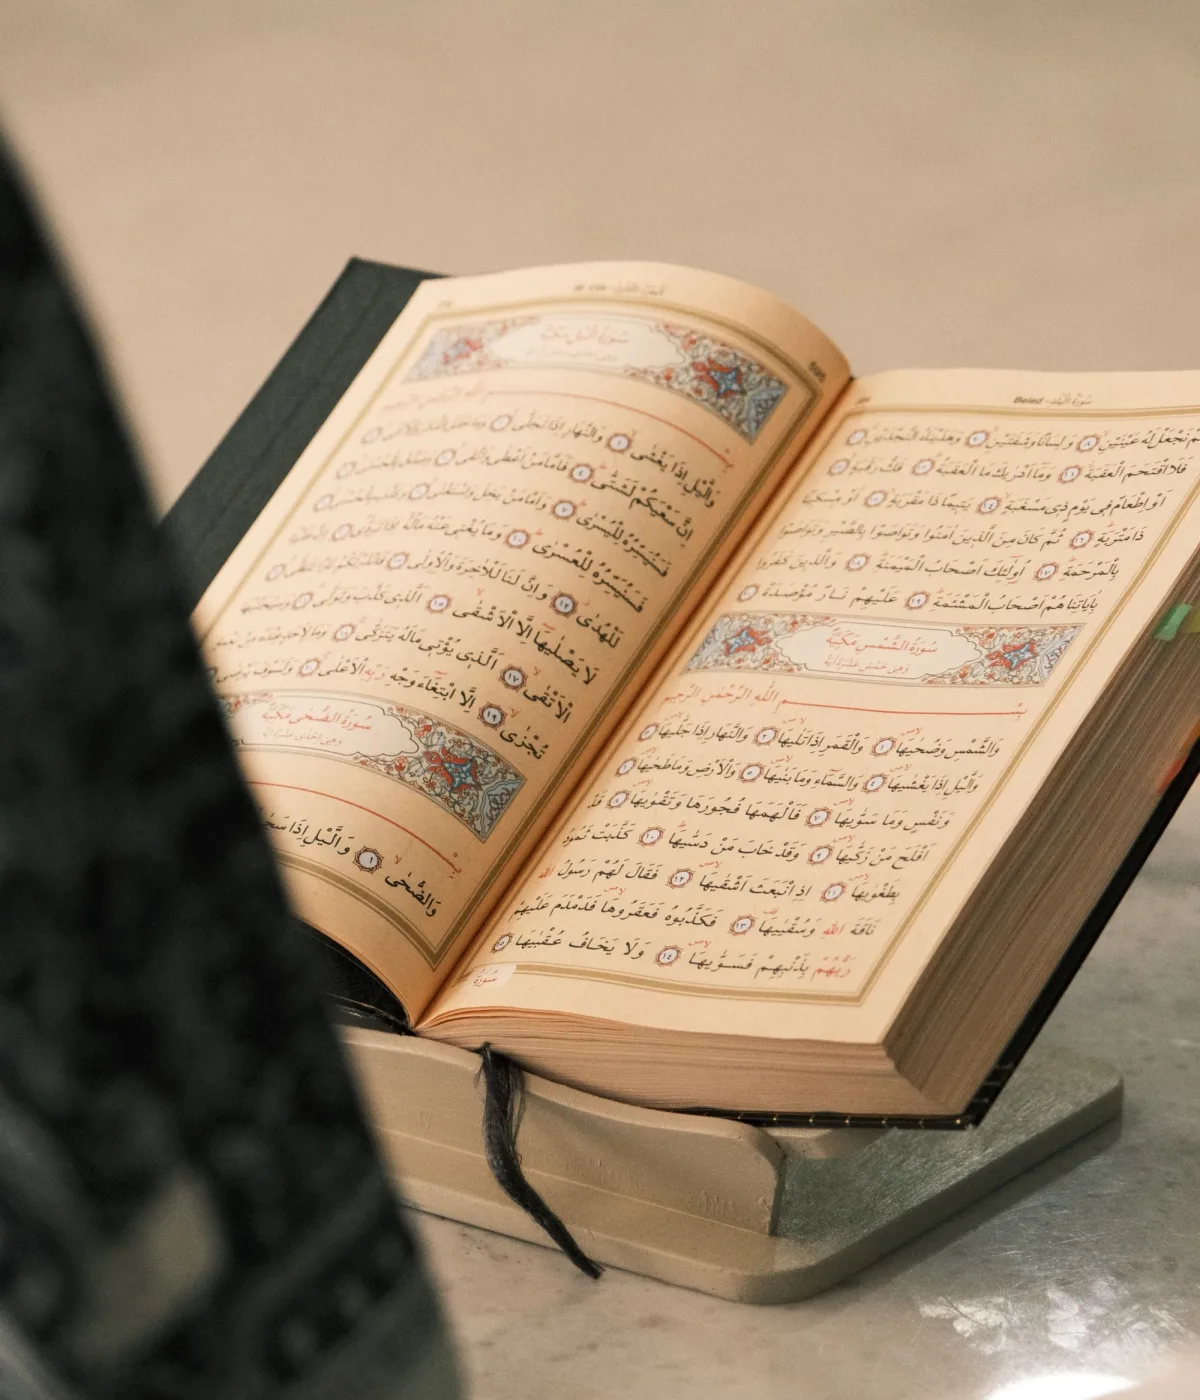 Beled - سُورَةُ الْبَلَدِ
نَجْعَلْ لَهُ عَيْنَيْنِ ٨ وَلِسَانًا وَشَفَتَيْنِ ٩ وَهَدَيْنَاهُ النَّجْدَيْنِ ١٠
فَلَا اقْتَحَمَ الْعَقَبَةَ ١١ وَمَا اَدْرٰيكَ مَا الْعَقَبَةُ ١٢ فَكُّ رَقَبَةٍ ١٣
اَوْ اِطْعَامٌ فٖى يَوْمٍ ذٖى مَسْغَبَةٍ ١٤ يَتٖيمًا ذَا مَقْرَبَةٍ ١٥ اَوْ مِسْكٖينًا
ذَا مَتْرَبَةٍ ١٦ ثُمَّ كَانَ مِنَ الَّذٖينَ اٰمَنُوا وَتَوَاصَوْا بِالصَّبْرِ وَتَوَاصَوْا
بِالْمَرْحَمَةِ ١٧ اُولٰٓئِكَ اَصْحَابُ الْمَيْمَنَةِ ١٨ وَالَّذٖينَ كَفَرُوا
بِاٰيَاتِنَا هُمْ اَصْحَابُ الْمَشْـَٔمَةِ ١٩ عَلَيْهِمْ نَارٌ مُؤْصَدَةٌ ٢٠
سُورَةُ الشَّمْسِ مَكِّيَّةٌ
وَهِىَ خَمْسَ عَشْرَةَ اٰيَةً
بِسْمِ اللّٰهِ الرَّحْمٰنِ الرَّحٖيمِ
وَالشَّمْسِ وَضُحٰيهَا ١ وَالْقَمَرِ اِذَا تَلٰيهَا ٢ وَالنَّهَارِ اِذَا جَلّٰيهَا ٣
وَالَّيْلِ اِذَا يَغْشٰيهَا ٤ وَالسَّمَآءِ وَمَا بَنٰيهَا ٥ وَالْاَرْضِ وَمَا طَحٰيهَا ٦
وَنَفْسٍ وَمَا سَوّٰيهَا ٧ فَاَلْهَمَهَا فُجُورَهَا وَتَقْوٰيهَا ٨ قَدْ
اَفْلَحَ مَنْ زَكّٰيهَا ٩ وَقَدْ خَابَ مَنْ دَسّٰيهَا ١٠ كَذَّبَتْ ثَمُودُ
بِطَغْوٰيهَا ١١ اِذِ انْبَعَثَ اَشْقٰيهَا ١٢ فَقَالَ لَهُمْ رَسُولُ اللّٰهِ
نَاقَةَ اللّٰهِ وَسُقْيٰيهَا ١٣ فَكَذَّبُوهُ فَعَقَرُوهَا فَدَمْدَمَ عَلَيْهِمْ
رَبُّهُمْ بِذَنْبِهِمْ فَسَوّٰيهَا ١٤ وَلَا يَخَافُ عُقْبٰيهَا ١٥
سُورَةُ
سُورَةُ الَّيْلِ مَكِّيَّةٌ
وَالَّيْلِ اِذَا يَغْشٰى ١ وَالنَّهَارِ اِذَا تَجَلّٰى ٢
اِنَّ سَعْيَكُمْ لَشَتّٰى ٤ فَاَمَّا مَنْ اَعْطٰى وَاتَّقٰى ٥
فَسَنُيَسِّرُهُ لِلْيُسْرٰى ٧ وَاَمَّا مَنْ بَخِلَ وَاسْتَغْنٰى ٨
فَسَنُيَسِّرُهُ لِلْعُسْرٰى ١٠ وَمَا يُغْنٖى عَنْهُ مَالُهُ
لَلْهُدٰى ١٢ وَاِنَّ لَنَا لَلْاٰخِرَةَ وَالْاُولٰى ١٣
لَا يَصْلٰيهَا اِلَّا الْاَشْقٰى ١٥ اَلَّذٖى كَذَّبَ وَتَوَلّٰى ١٦ وَسَيُجَنَّبُهَا
الْاَتْقٰى ١٧ اَلَّذٖى يُؤْتٖى مَالَهُ يَتَزَكّٰى ١٨
تُجْزٰى ١٩ اِلَّا ابْتِغَآءَ وَجْهِ رَبِّهِ الْاَعْلٰى ٢٠ وَلَسَوْفَ يَرْضٰى
سُورَةُ الضُّحٰى مَكِّيَّةٌ
وَهِىَ اِحْدٰى عَشْرَةَ اٰيَةً
وَالضُّحٰى ١ وَالَّيْلِ اِذَا